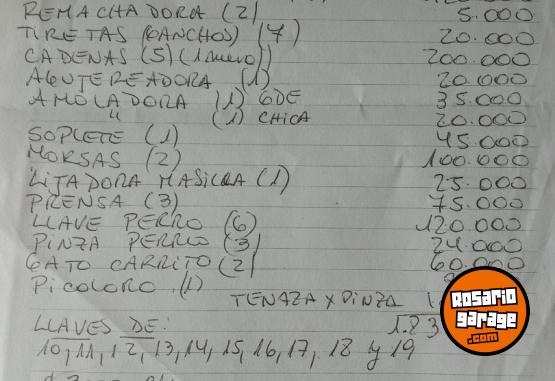 REMACHADORA (2) 5.000
TIRETAS (GANCHOS) (7) 20.000
CADENAS (5) (1 nuevo) 200.000
AGUJEREADORA (1) 20.000
AMOLADORA (1) GDE 35.000
" (1) CHICA 20.000
SOPLETE (1) 45.000
MORSAS (2) 100.000
LIJADORA MASILLA (1) 25.000
PRENSA (3) 75.000
LLAVE PERRO (6) 120.000
PINZA PERRO (3) 24.000
GATO CARRITO (2) 60.000
PICOLORO (1)
TENAZA X PINZA
LLAVES DE: 1.83
10, 11, 12, 13, 14, 15, 16, 17, 18 y 19
Rosario garage .com